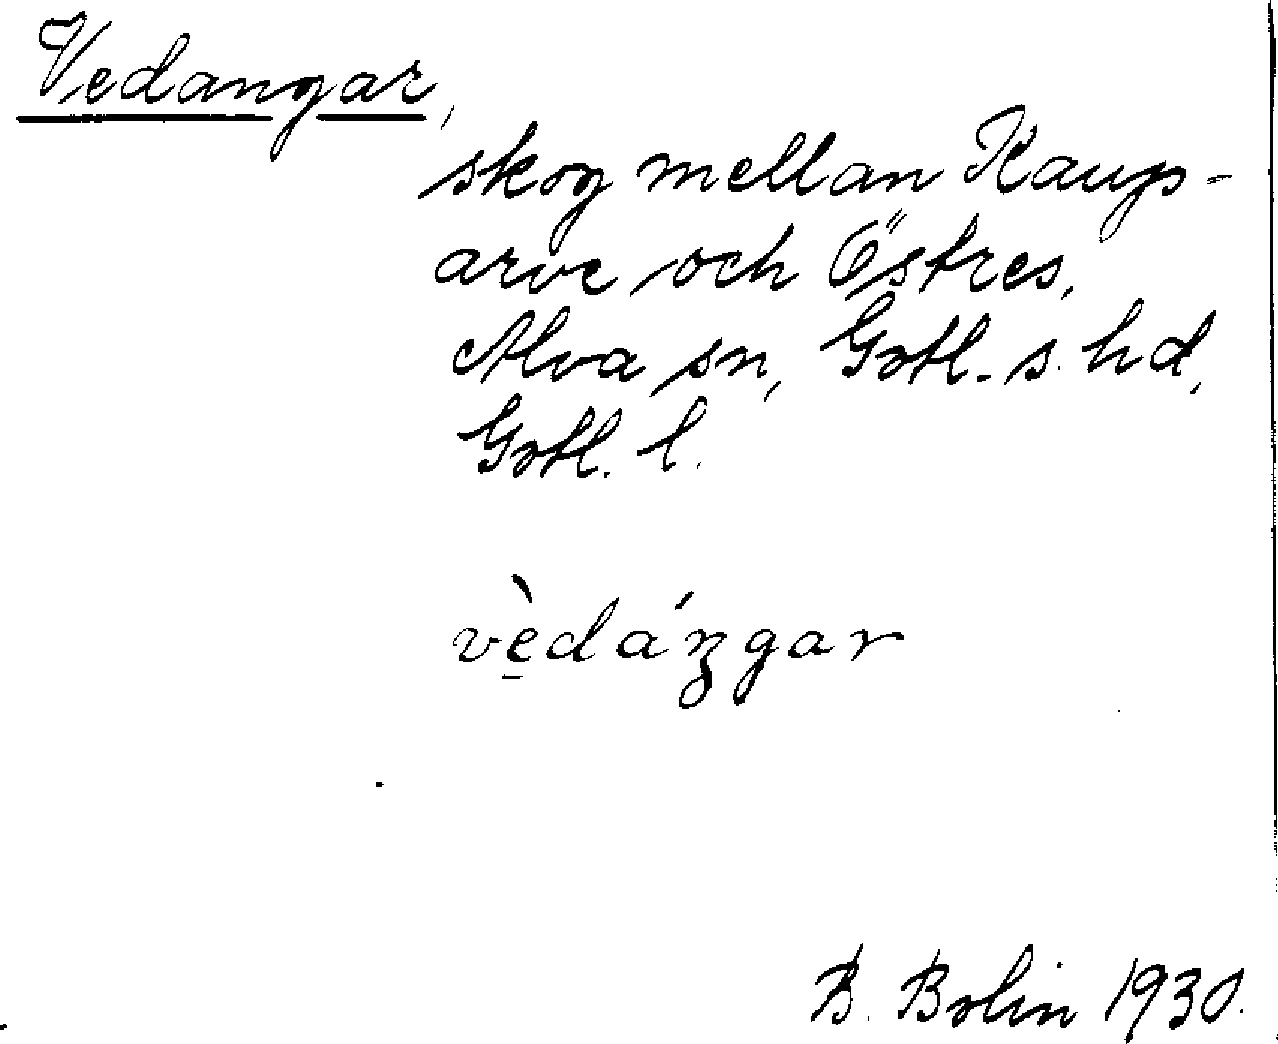 Vedangar,
skog mellan Kaup-
arve och Östres,
Alva sn, Gotl. s. hd,
Gotl. l.
vè̱dáŋgar
B. Bolin 1930.